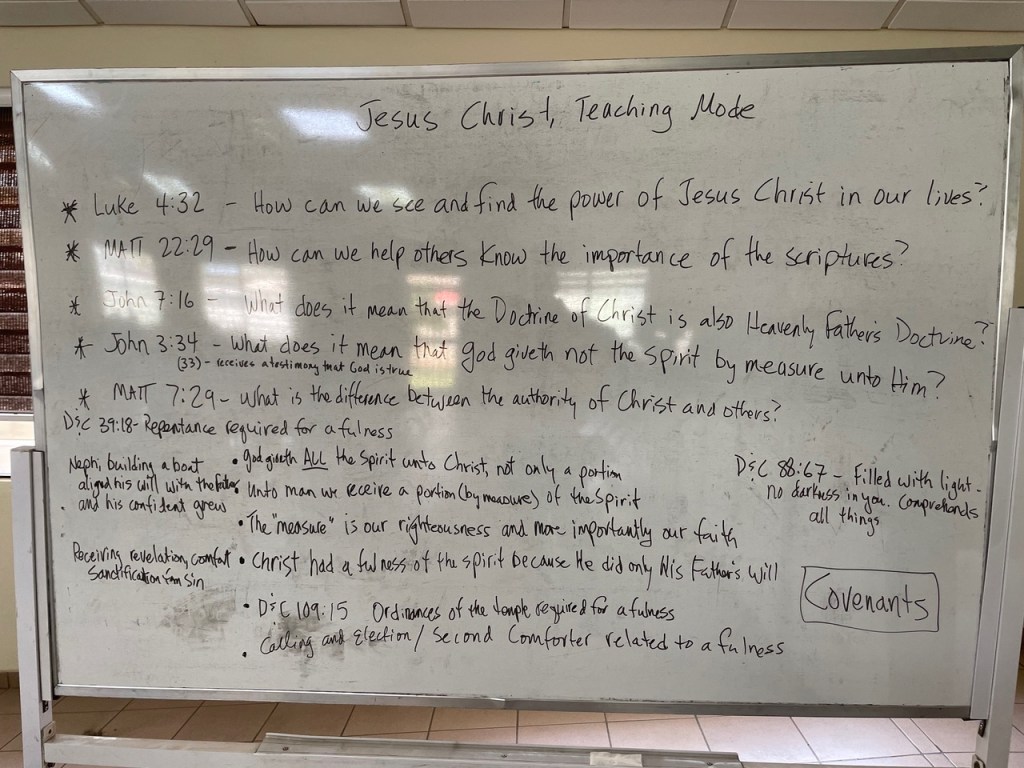 Jesus Christ, Teaching Mode
* Luke 4:32 - How can we see and find the power of Jesus Christ in our lives?
* MATT 22:29 - How can we help others know the importance of the scriptures?
* John 7:16 - What does it mean that the Doctrine of Christ is also Heavenly Father's Doctrine?
* John 3:34 - What does it mean that god giveth not the spirit by measure unto Him?
(33) - receives a testimony that God is true
* MATT 7:29 - What is the difference between the authority of Christ and others?
D&C 39:18 - Repentance required for a fulness
Nephi, building a boat
aligned his will with the father
and his confident grew
• god giveth ALL the spirit unto Christ, not only a portion
• unto man we receive a portion (by measure) of the Spirit
• The "measure" is our righteousness and more importantly our faith
D&C 88:67 - Filled with light -
no darkness in you. Comprehends
all things
Receiving revelation, comfort
Sanctification from Sin
• Christ had a fulness of the spirit because He did only His Father's will
• D&C 109:15 Ordinances of the temple required for a fulness
• Calling and Election / Second Comforter related to a fulness
Covenants